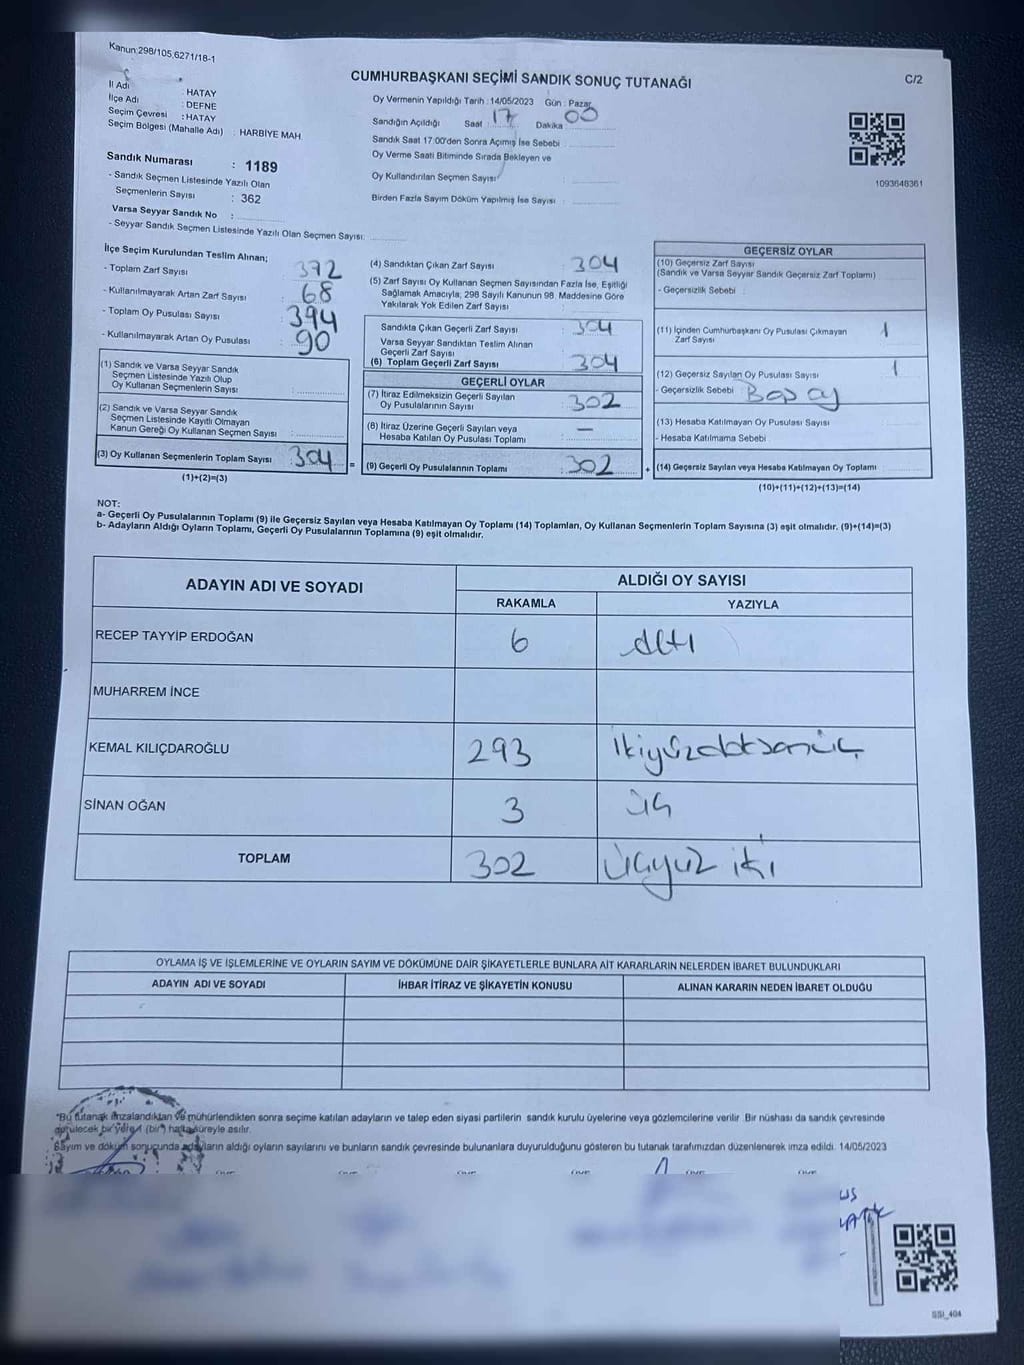 Kanun:298/105,6271/18-1
CUMHURBAŞKANI SEÇİMİ SANDIK SONUÇ TUTANAĞI
C/2
İl Adı : HATAY
İlçe Adı : DEFNE
Seçim Çevresi : HATAY
Seçim Bölgesi (Mahalle Adı) : HARBİYE MAH.
Sandık Numarası : 1189
- Sandık Seçmen Listesinde Yazılı Olan
Seçmenlerin Sayısı : 362
Varsa Seyyar Sandık No :
- Seyyar Sandık Seçmen Listesinde Yazılı Olan Seçmen Sayısı:
Oy Vermenin Yapıldığı Tarih : 14/05/2023 Gün : Pazar
Sandığın Açıldığı Saat : 17 Dakika : 00
Sandık Saat 17:00'den Sonra Açılmış İse Sebebi :
Oy Verme Saati Bitiminde Sırada Bekleyen ve
Oy Kullandırılan Seçmen Sayısı :
Birden Fazla Sayım Döküm Yapılmış İse Sayısı :
1093648361
İlçe Seçim Kurulundan Teslim Alınan;
- Toplam Zarf Sayısı : 372
- Kullanılmayarak Artan Zarf Sayısı : 68
- Toplam Oy Pusulası Sayısı : 394
- Kullanılmayarak Artan Oy Pusulası : 90
(1) Sandık ve Varsa Seyyar Sandık
Seçmen Listesinde Yazılı Olup
Oy Kullanan Seçmenlerin Sayısı :
(2) Sandık ve Varsa Seyyar Sandık
Seçmen Listesinde Kayıtlı Olmayan
Kanun Gereği Oy Kullanan Seçmen Sayısı :
(3) Oy Kullanan Seçmenlerin Toplam Sayısı : 304 =
(1)+(2)=(3)
(4) Sandıktan Çıkan Zarf Sayısı : 304
(5) Zarf Sayısı Oy Kullanan Seçmen Sayısından Fazla İse, Eşitliği
Sağlamak Amacıyla; 298 Sayılı Kanunun 98. Maddesine Göre
Yakılarak Yok Edilen Zarf Sayısı :
Sandıkta Çıkan Geçerli Zarf Sayısı : 304
Varsa Seyyar Sandıktan Teslim Alınan
Geçerli Zarf Sayısı
(6) Toplam Geçerli Zarf Sayısı : 304
GEÇERLİ OYLAR
(7) İtiraz Edilmeksizin Geçerli Sayılan
Oy Pusulalarının Sayısı : 302
(8) İtiraz Üzerine Geçerli Sayılan veya
Hesaba Katılan Oy Pusulası Toplamı : –
(9) Geçerli Oy Pusulalarının Toplamı : 302 +
GEÇERSİZ OYLAR
(10) Geçersiz Zarf Sayısı
(Sandık ve Varsa Seyyar Sandık Geçersiz Zarf Toplamı)
- Geçersizlik Sebebi :
(11) İçinden Cumhurbaşkanı Oy Pusulası Çıkmayan
Zarf Sayısı 1
(12) Geçersiz Sayılan Oy Pusulası Sayısı : 1
- Geçersizlik Sebebi
(13) Hesaba Katılmayan Oy Pusulası Sayısı
- Hesaba Katılmama Sebebi
(14) Geçersiz Sayılan veya Hesaba Katılmayan Oy Toplamı
(10)+(11)+(12)+(13)=(14)
NOT:
a- Geçerli Oy Pusulalarının Toplamı (9) ile Geçersiz Sayılan veya Hesaba Katılmayan Oy Toplamı (14) Toplamları, Oy Kullanan Seçmenlerin Toplam Sayısına (3) eşit olmalıdır. (9)+(14)=(3)
b- Adayların Aldığı Oyların Toplamı, Geçerli Oy Pusulalarının Toplamına (9) eşit olmalıdır.
ADAYIN ADI VE SOYADI ALDIĞI OY SAYISI
RAKAMLA YAZIYLA
RECEP TAYYİP ERDOĞAN 6 altı
MUHARREM İNCE
KEMAL KILIÇDAROĞLU 293 ikiyüzdoksanüç
SİNAN OĞAN 3 üç
TOPLAM 302 üçyüz iki
OYLAMA İŞ VE İŞLEMLERİNE VE OYLARIN SAYIM VE DÖKÜMÜNE DAİR ŞİKAYETLERLE BUNLARA AİT KARARLARIN NELERDEN İBARET BULUNDUKLARI
ADAYIN ADI VE SOYADI İHBAR İTİRAZ VE ŞİKAYETİN KONUSU ALINAN KARARIN NEDEN İBARET OLDUĞU
*Bu tutanak imzalandıktan ve mühürlendikten sonra seçime katılan adayların ve talep eden siyasi partilerin sandık kurulu üyelerine veya gözlemcilerine verilir. Bir nüshası da sandık çevresinde
görülecek bir yere 1 (bir) hafta süreyle asılır.
Sayım ve döküm sonucunda adayların aldığı oyların sayılarını ve bunların sandık çevresinde bulunanlara duyurulduğunu gösteren bu tutanak tarafımızdan düzenlenerek imza edildi. 14/05/2023
SSI_404